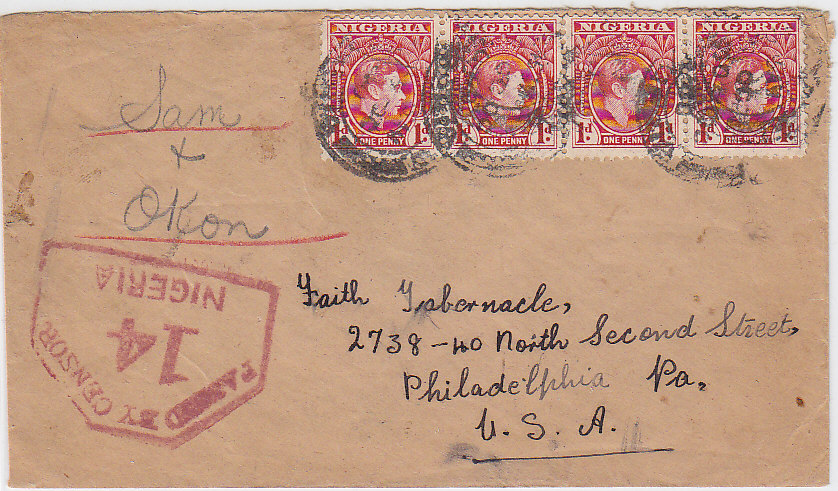 NIGERIA NIGERIA NIGERIA NIGERIA
1d 1d 1d 1d 1d 1d 1d
ONE PENNY ONE PENNY ONE PENNY ONE PENNY
Sam
+
Okon
Faith Tabernacle,
2738-40 North Second Street,
Philadelphia Pa,
U. S. A.
PASSED BY CENSOR
14
NIGERIA